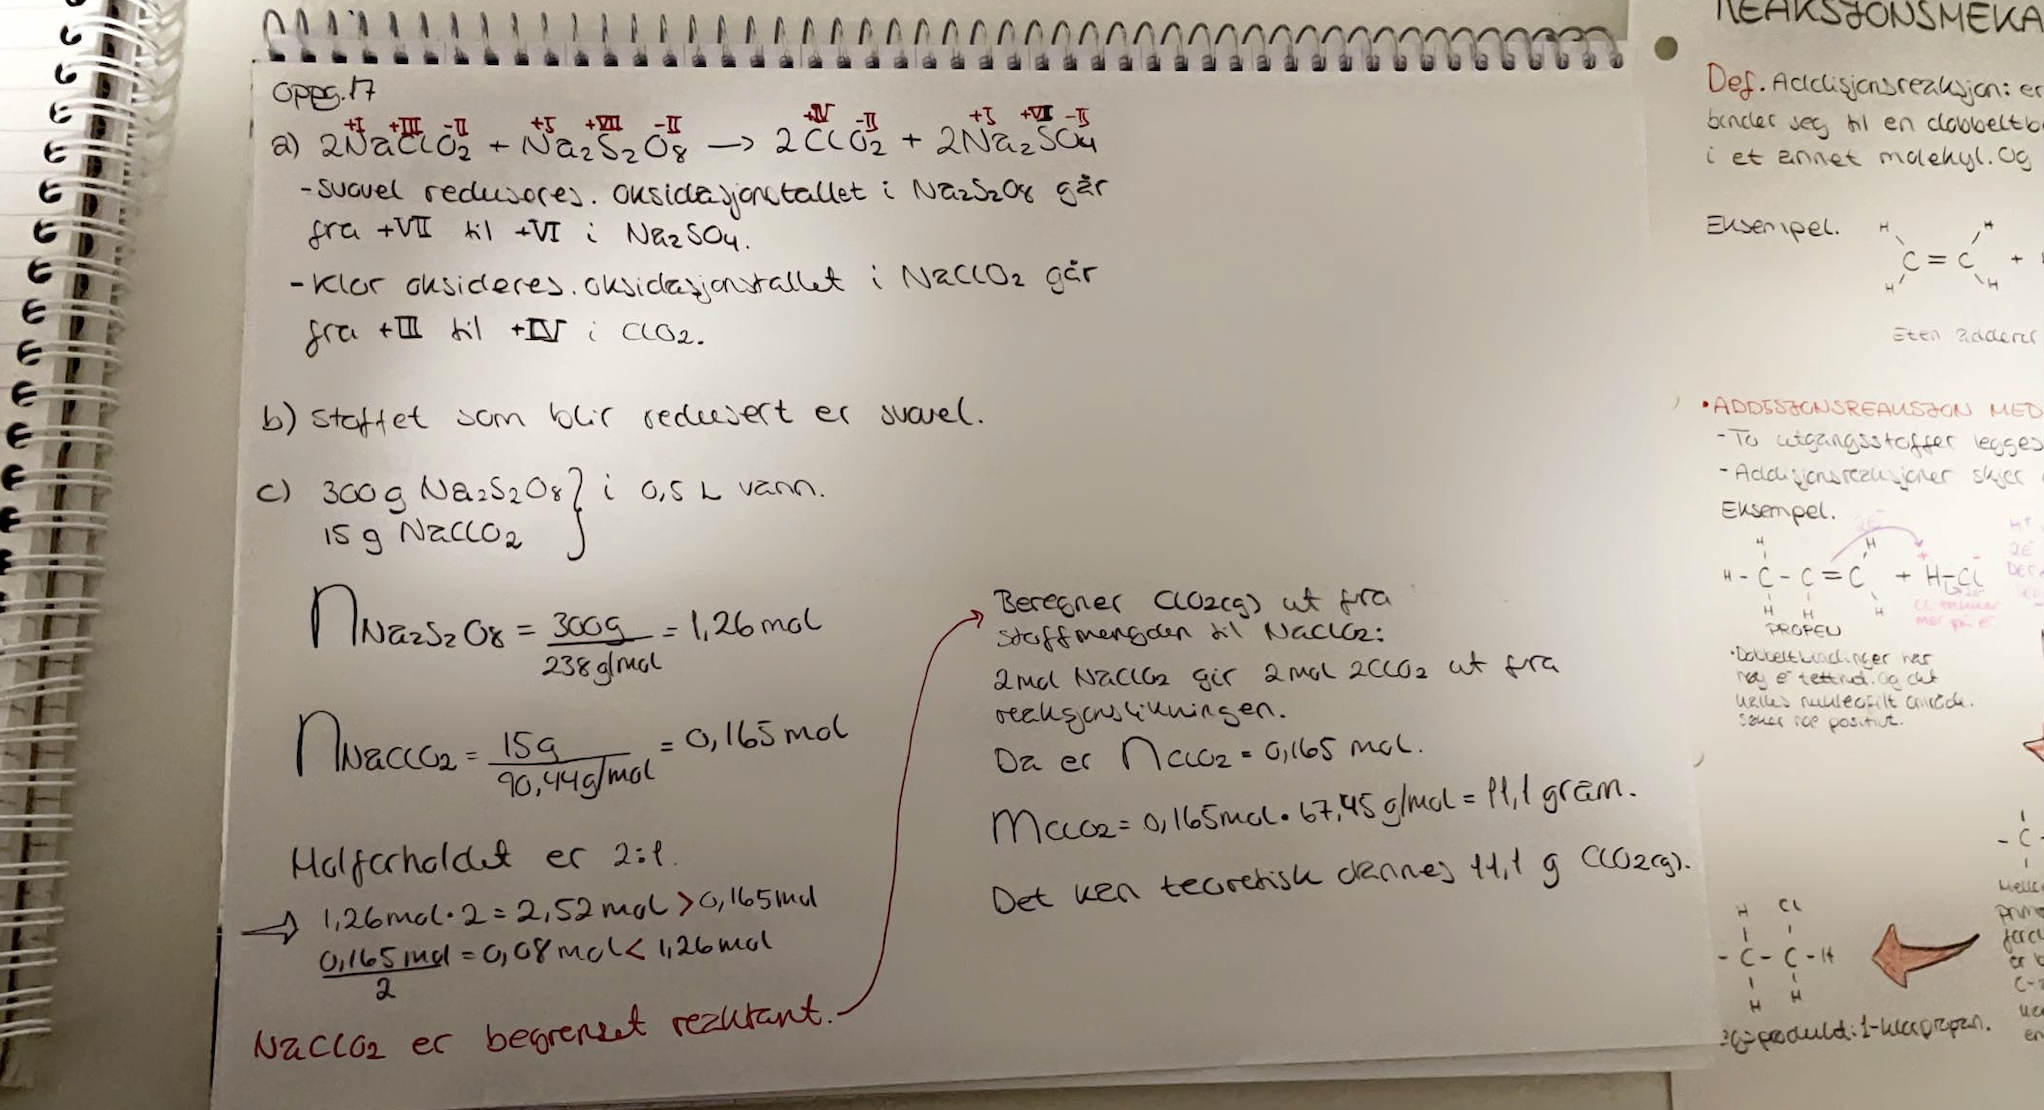 oppg.17
+I +III -II +I +VII -II +IV -II +I +VI -II
a) 2NaClO2 + Na2S2O8 → 2ClO2 + 2Na2SO4
- Svovel reduseres. Oksidasjonstallet i Na2S2O8 går
fra +VII til +VI i Na2SO4.
- Klor oksideres. Oksidasjonstallet i NaClO2 går
fra +III til +IV i ClO2.
b) stoffet som blir redusert er svovel.
c) 300g Na2S2O8 } i 0,5 L vann.
15 g NaClO2
nNa2S2O8 = 300g / 238 g/mol = 1,26 mol
nNaClO2 = 15g / 90,44g/mol = 0,165 mol
Molforholdet er 2:1.
→ 1,26mol·2 = 2,52 mol > 0,165mol
0,165 mol / 2 = 0,08 mol < 1,26 mol
NaClO2 er begrenset reaktant.
Beregner ClO2(g) ut fra
stoffmengden til NaClO2:
2mol NaClO2 gir 2 mol 2ClO2 ut fra
reaksjonslikningen.
Da er nClO2 = 0,165 mol.
mClO2 = 0,165mol · 67,45 g/mol = 11,1 gram.
Det kan teoretisk dannes 11,1 g ClO2(g).
REAKSJONSMEKA
Def. Addisjonsreaksjon: er
binder seg til en dobbeltb
i et annet molekyl. Og
Eksempel.
H H
C = C +
H H
Eten adderer
• ADDISJONSREAKSJON MED
- To utgangsstoffer legges
- Addisjonsreaksjoner skjer
Eksempel.
2e⁻
H H
H - C - C = C + H-Cl
H H H
PROPEN
• Dobbeltbindinger har
høy e⁻ tetthet. Og det
kalles nukleofilt område.
søker noe positivt.
H Cl
- C - C - H
H H
produkt: 1-klorpropan.